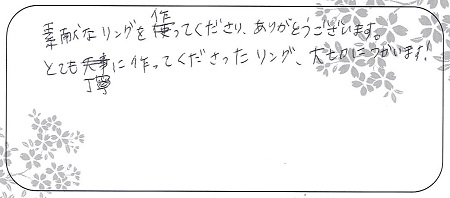 素敵なリングを作ってくださり、ありがとうございます。
とても丁寧に作ってくださったリング、大切につかいます!